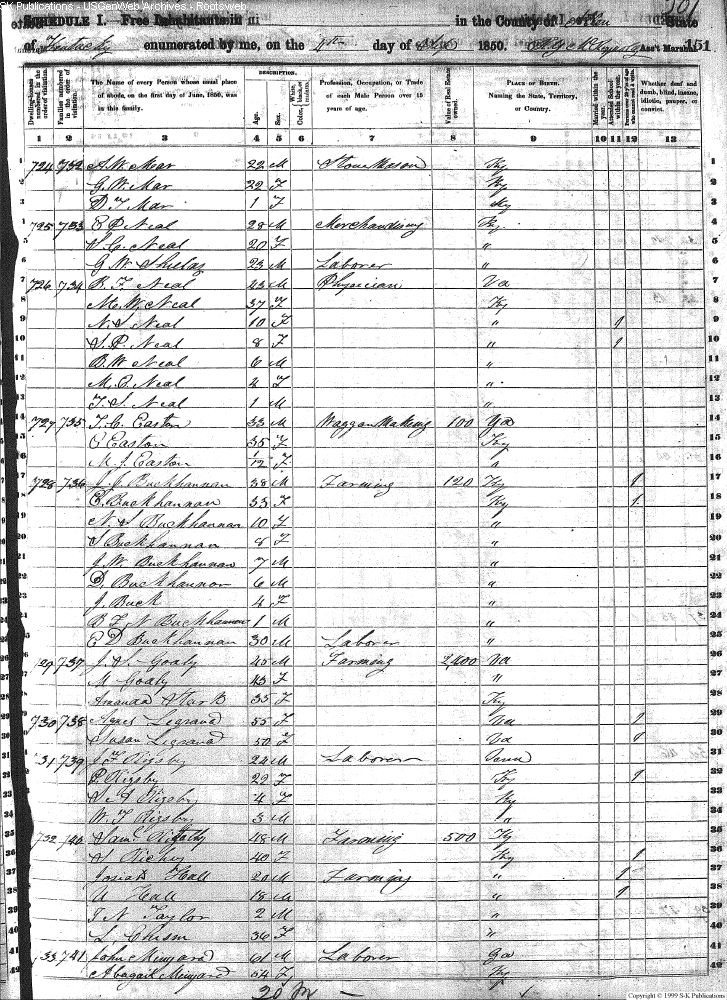 SK Publications - USGenWeb Archives - Rootsweb
201
SCHEDULE I. Free Inhabitants in in the County of State
of Kentucky enumerated by me, on the day of 1850. Ass't Marshal. 151
Dwelling-houses numbered in the order of visitation. Families numbered in the order of visitation. The Name of every Person whose usual place of abode, on the first day of June, 1850, was in this family. DESCRIPTION. Age. Sex. Color, White, black, or mulatto. Profession, Occupation, or Trade of each Male Person over 15 years of age. Value of Real Estate owned. PLACE OF BIRTH. Naming the State, Territory, or Country. Married within the year. Attended School within the year. Persons over 20 y'rs of age who cannot read & write. Whether deaf and dumb, blind, insane, idiotic, pauper, or convict.
1 2 3 4 5 6 7 8 9 10 11 12 13
1 724 732 A. W. Mar 22 M Stone Mason Ky 1
2 G. W. Mar 22 F Ky 2
3 D. T. Mar 1 F Ky 3
4 725 733 E P Neal 28 M Merchandising Ky 4
5 S. C. Neal 20 F " 5
6 G W 23 M Laborer " 6
7 726 734 B. F. Neal 43 M Physician Va 7
8 M. W. Neal 37 F Ky 8
9 N. S. Neal 10 F " 1 9
10 S. P. Neal 8 F " 1 10
11 B. W Neal 6 M " 11
12 M. E. Neal 4 F " 12
13 T. S. Neal 1 M " 13
14 727 735 T. C. Easton 33 M Waggon Making 100 Va 14
15 E Easton 35 F Ky 15
16 M. J. Easton 1/12 F " 16
17 728 736 J. J. Buckhannan 38 M Farming 120 Ky 1 17
18 E. Buckhannan 33 F Ky 1 18
19 N. S Buckhannan 10 F " 19
20 S Buckhannan 8 F " 20
21 J. W. Buckhannan 7 M " 21
22 D. Buckhannon 6 M " 22
23 J. Buck 4 F " 23
24 B F N Buckhannan 1 M " 24
25 E D Buckhannan 30 M Laborer " 25
26 729 737 J. S. Goaly 45 M Farming 2400 Va 26
27 M Goaly 43 F " 27
28 Amanda Stark 35 F Ky 28
29 730 738 Agnes Legrand 55 F Va 1 29
30 Susan Legrand 50 F Va 1 30
31 731 739 J. F Rigsby 24 M Laborer Penn 31
32 P. Rigsby 22 F Ky 1 32
33 S. A Rigsby 4 F Ky 33
34 W. F Rigsby 3 M " 34
35 732 740 Saml. 48 M Farming 500 Ky 35
36 S Richey 40 F Ky 1 36
37 Josiah Hall 20 M Farming " 1 37
38 U Hall 18 M " 1 38
39 T N Taylor 2 M " 39
40 L. Chism 36 F " 40
41 733 741 John Minyard 61 M Laborer Ga 41
42 Abagail Minyard 54 F Ky 42
20 M
Copyright © 1999 S-K Publications